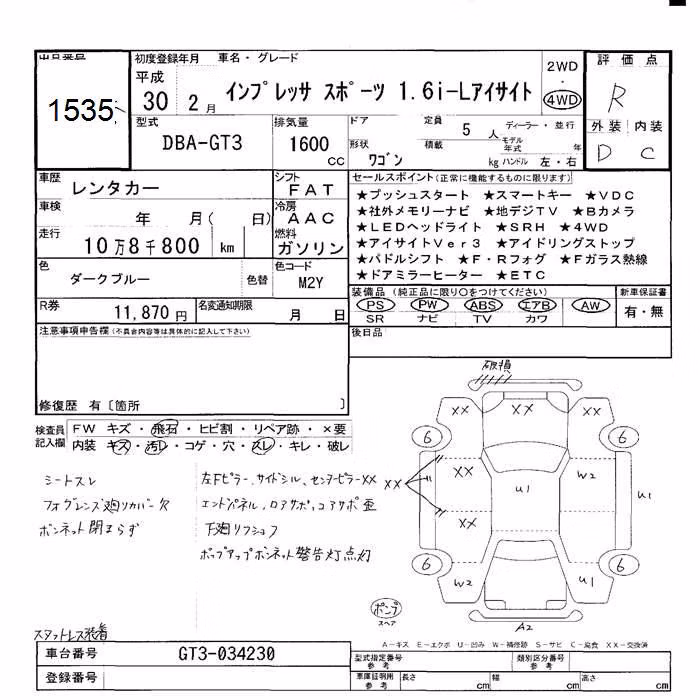 出品番号
1535
初度登録年月 車名・グレード
平成
30 2月
インプレッサ スポーツ 1.6i-Lアイサイト
2WD
・
4WD
評価点
R
外装 内装
D C
型式
DBA-GT3
排気量
1600
CC
ドア 定員 5 人 ディーラー・並行
形状 積載 モデル年式 年
ワゴン kg ハンドル 左・右
車歴
レンタカー
シフト
FAT
車検
年 月( 日)
冷房
AAC
走行
10万8千800 km
燃料
ガソリン
色
ダークブルー 色替
色コード
M2Y
R券
11,870円
名変通知期限
月 日
セールスポイント(正常に機能するものに限ります)
★プッシュスタート ★スマートキー ★VDC
★社外メモリーナビ ★地デジTV ★Bカメラ
★LEDヘッドライト ★SRH ★4WD
★アイサイトVer3 ★アイドリングストップ
★パドルシフト ★F・Rフォグ ★Fガラス熱線
★ドアミラーヒーター ★ETC
装備品(純正品に限り○をつけてください) 新車保証書
PS PW ABS エアB AW 有・無
SR ナビ TV カワ
注意事項申告欄(不具合内容等は具体的に記入して下さい)
後日品
修復歴 有〔箇所 〕
検査員 FW キズ・飛石・ヒビ割・リペア跡・×要
記入欄 内装 キズ・汚レ・コゲ・穴・スレ・キレ・破レ
シートスレ
フォグレンズ廻リカバー欠
ボンネット閉まらず
左Fピラー、サイドシル、センターピラーXX
エンドパネル、ロアサポ、コアサポ歪
下廻リフショク
ポップアップボンネット警告灯点灯
破損
XX XX XX
6 6
XX XX W2
U1 U1
XX
6 6
W2 U1
ポンプ
スペア
A2
スタットレス装着
A-キズ E-エクボ U-凹み W-補修跡 S-サビ C-腐食 XX-交換済
車台番号 GT3-034230
登録番号
型式指定番号 参考 類別区分番号 参考
車庫証明用 参考 長さ cm 幅 cm 高さ cm